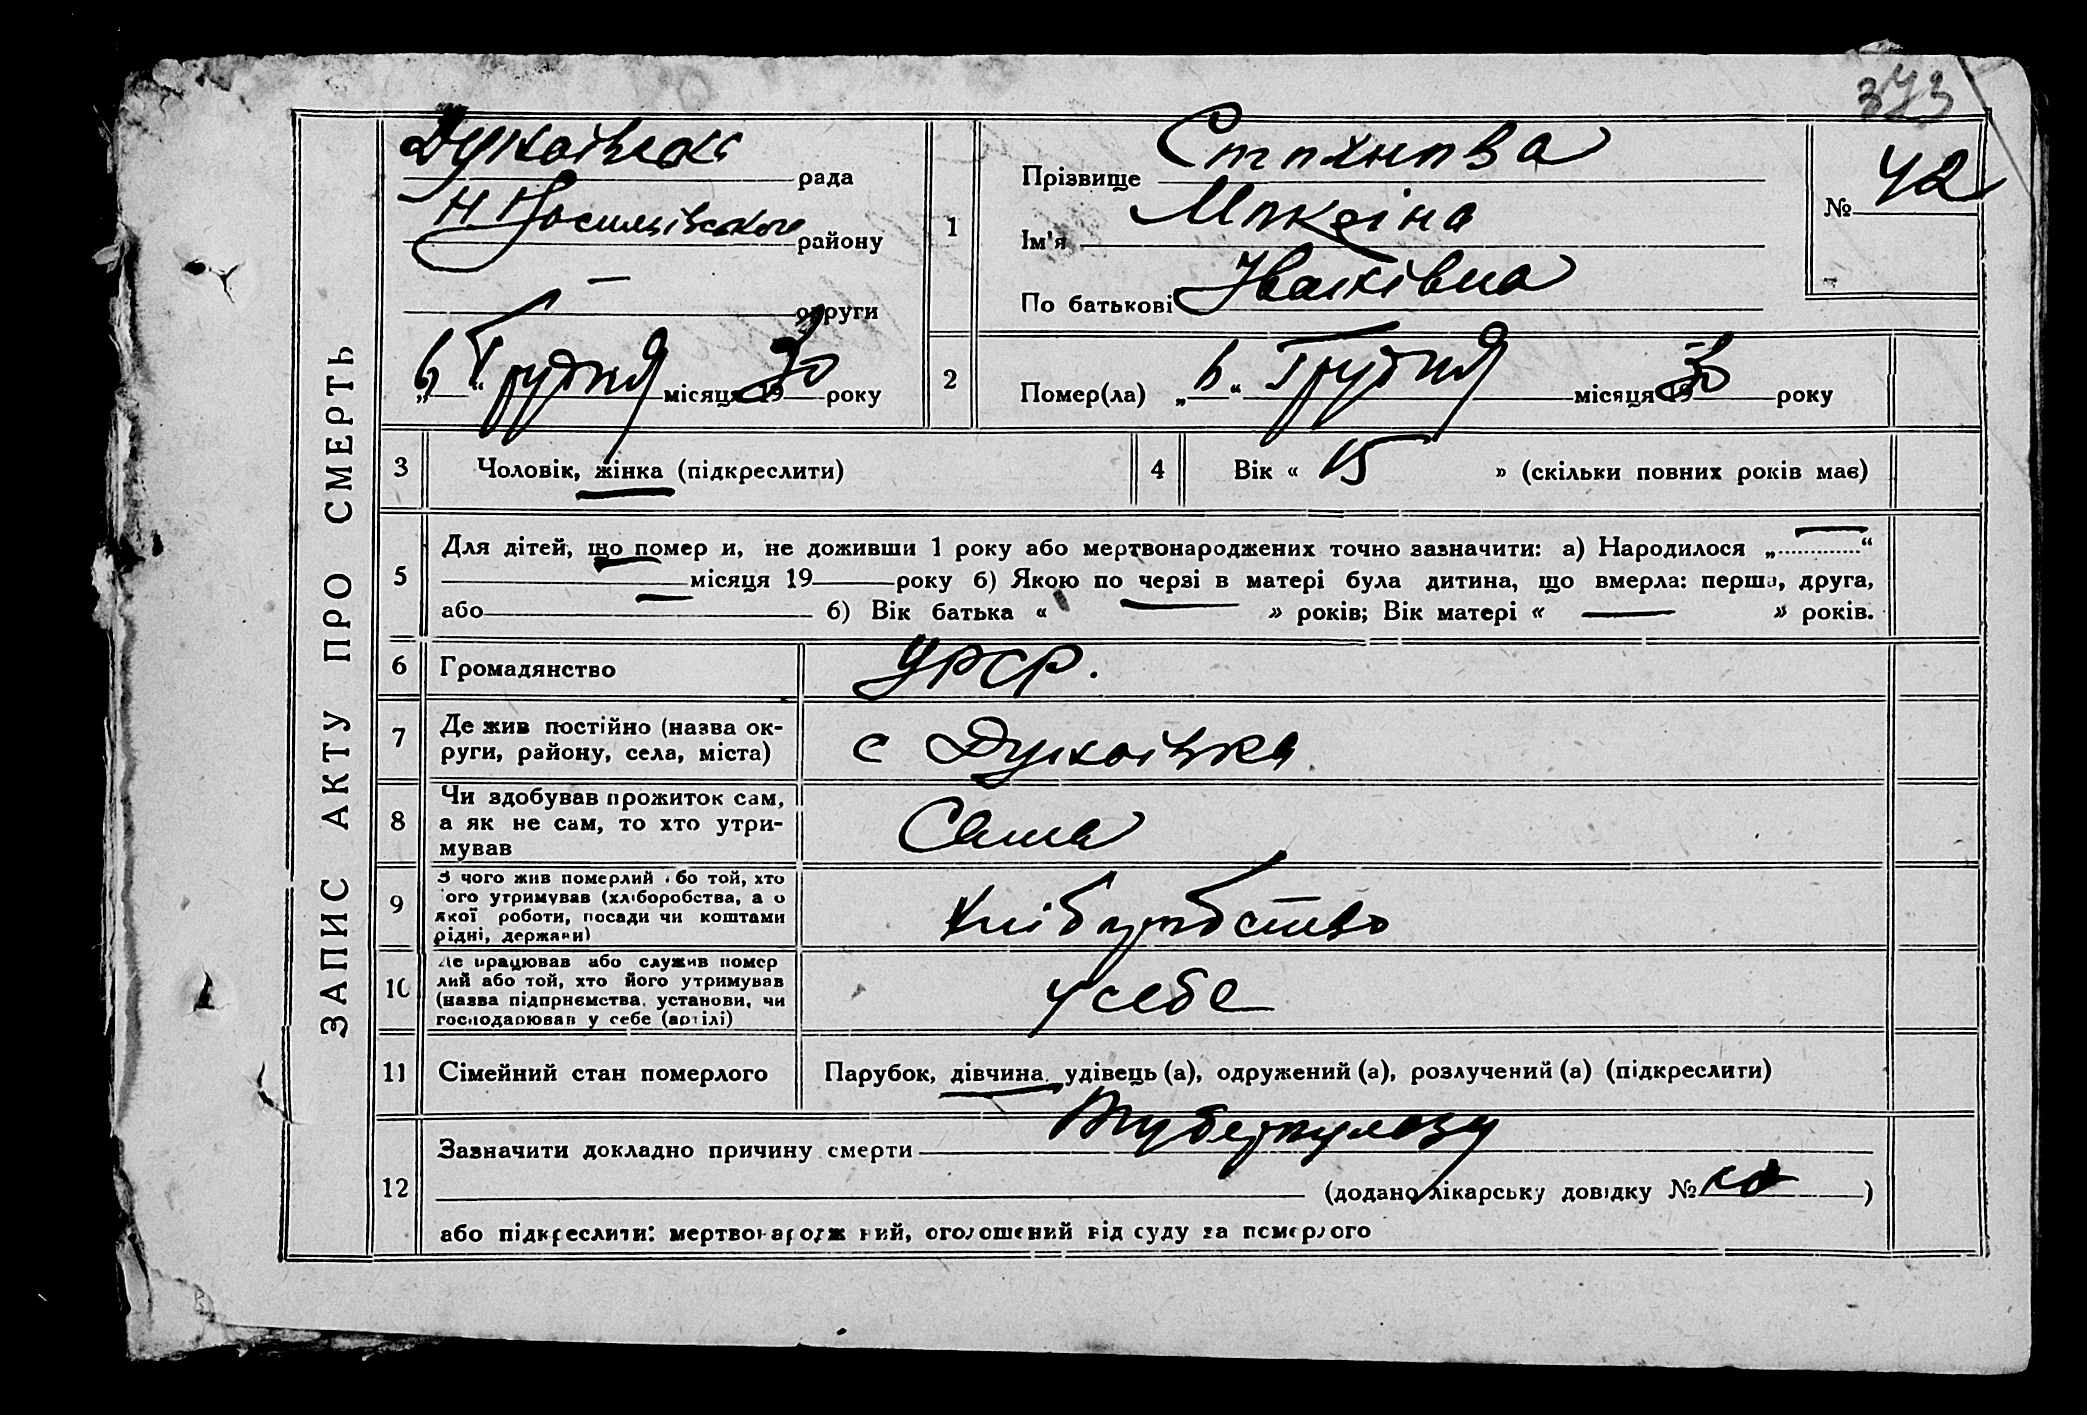 373
ЗАПИС АКТУ ПРО СМЕРТЬ
рада
району
округи
„6“ Грудня місяця 1930 року
1
Прізвище
Ім'я
По батькові Іванівна
№ 42
2 Помер(ла) „6“ Грудня місяця 1930 року
3 Чоловік, жінка (підкреслити)
4 Вік « 15 » (скільки повних років має)
5 Для дітей, що помер и, не доживши 1 року або мертвонароджених точно зазначити: а) Народилося „—“
місяця 19 — року б) Якою по черзі в матері була дитина, що вмерла: перша, друга,
або б) Вік батька « — » років; Вік матері « — » років.
6 Громадянство УРСР.
7 Де жив постійно (назва ок-
руги, району, села, міста)
с
8 Чи здобував прожиток сам,
а як не сам, то хто утри-
мував
Сама
9 З чого жив померлий або той, хто
його утримував (хліборобства, а о
якої роботи, посади чи коштами
рідні, держави)
10 Де працював або служив помер
лий або той, хто його утримував
(назва підприємства, установи, чи
господарював у себе (артілі)
у себе
11 Сімейний стан померлого Парубок, дівчина, удівець (а), одружений (а), розлучений (а) (підкреслити)
12 Зазначити докладно причину смерти Туберкульозу
(додано лікарську довідку № )
або підкреслити: мертвонароджений, оголошений від суду за померлого